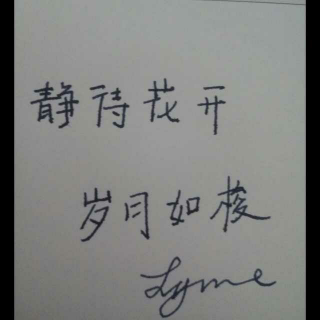 静待花开
岁月如梭
Lyme